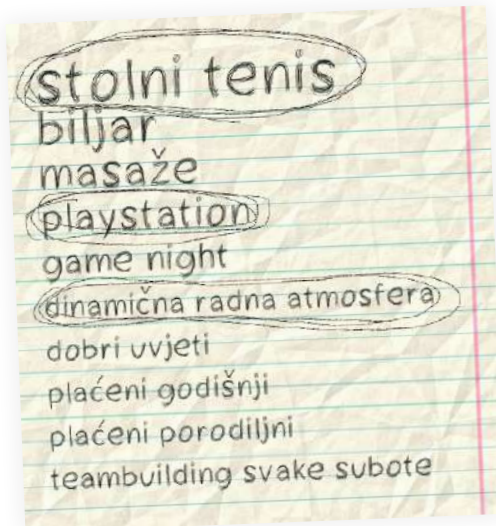 stolni tenis
biljar
masaže
playstation
game night
dinamična radna atmosfera
dobri uvjeti
plaćeni godišnji
plaćeni porodiljni
teambuilding svake subote